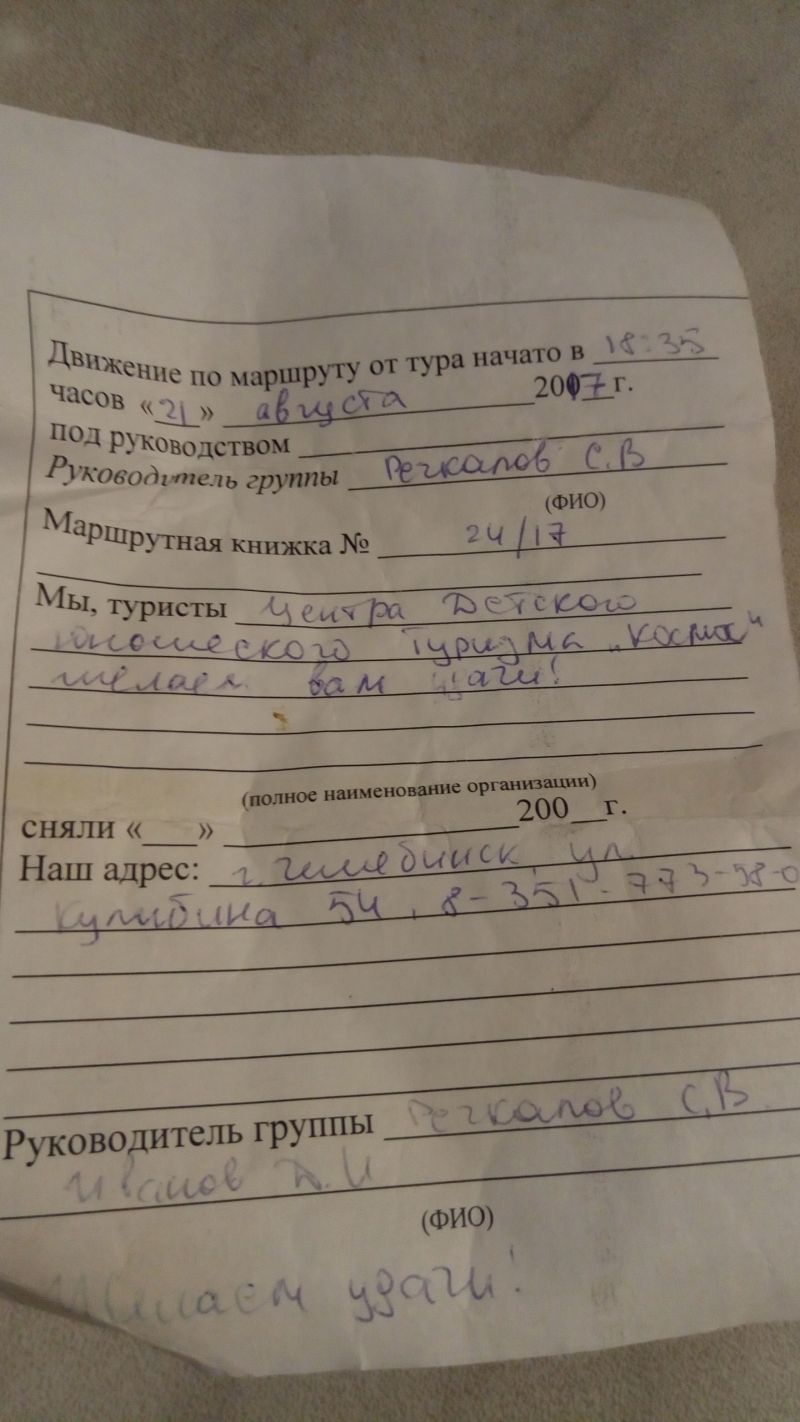 Движение по маршруту от тура начато в 18:35
часов «21» августа 2017г.
под руководством
Руководитель группы Речкалов С.В
(ФИО)
Маршрутная книжка № 24/17
Мы, туристы Центра Детского
юношеского Туризма „Космос"
желаем вам удачи!
(полное наименование организации)
сняли «___» 200__г.
Наш адрес: г. Челябинск, ул.
Кулибина 54, 8-351-773-98-0
Руководитель группы Речкалов С.В
Иванов Д.И
(ФИО)
Желаем удачи!